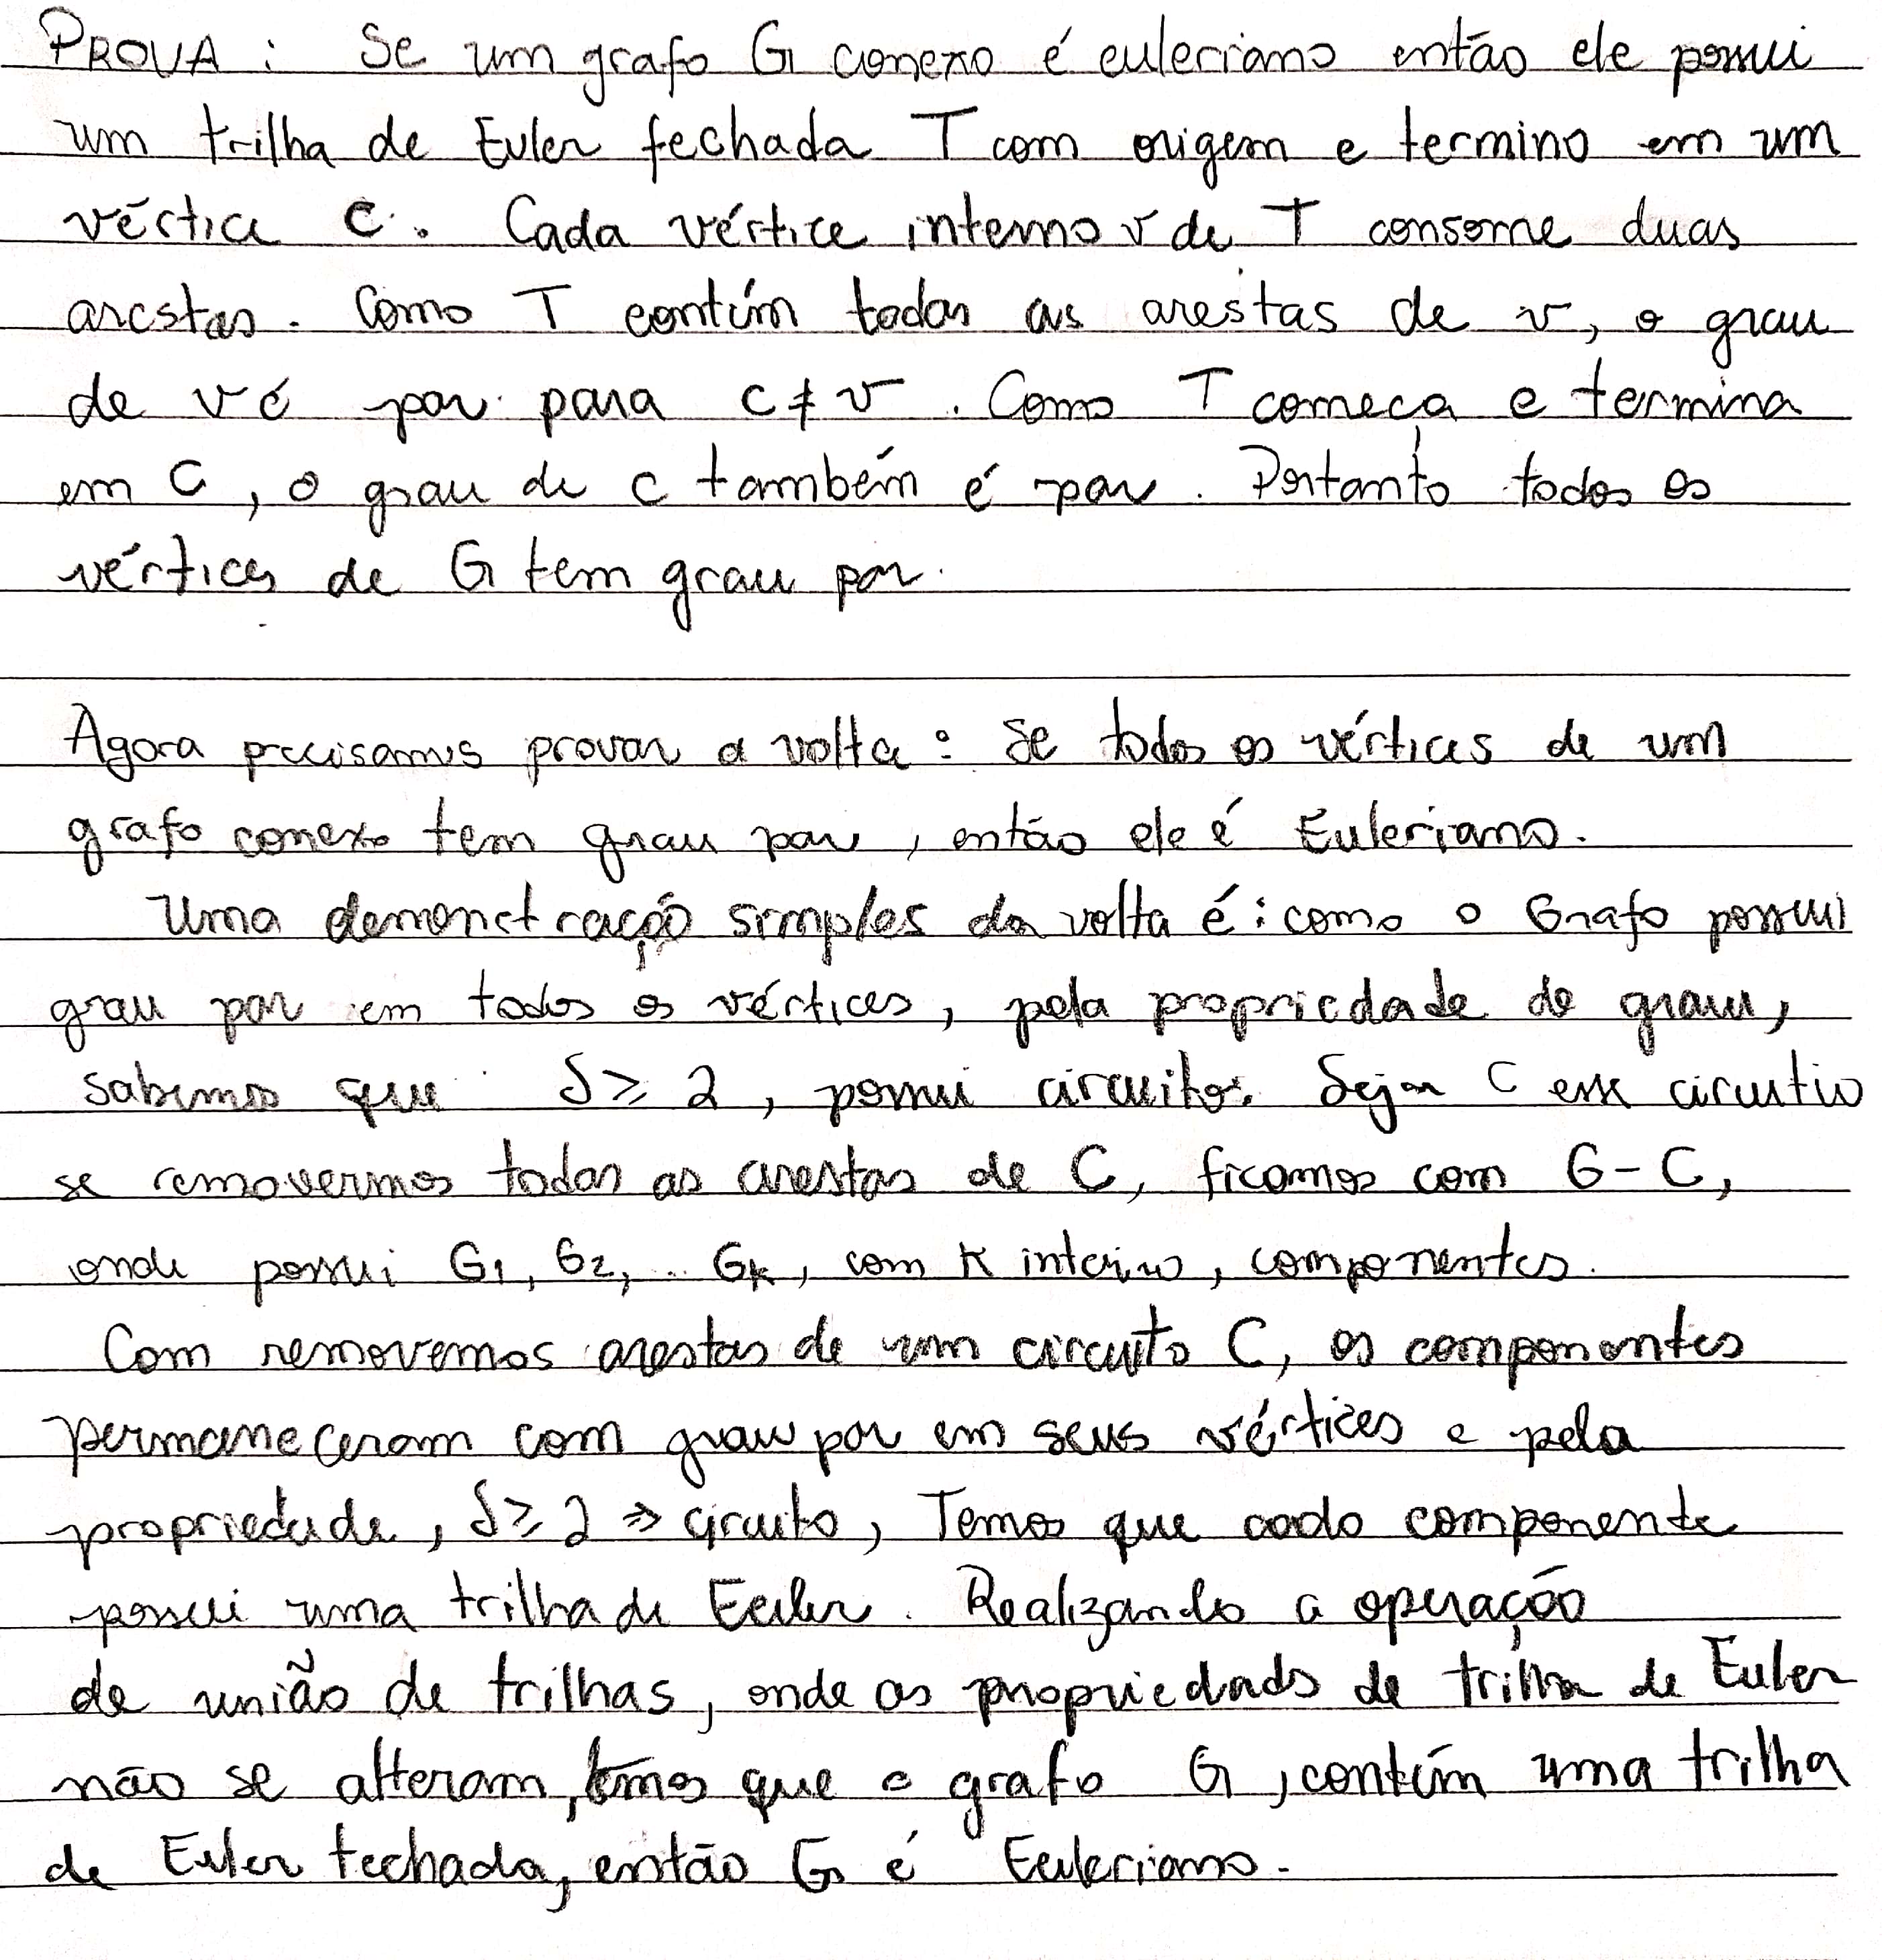 PROVA : Se um grafo G conexo é euleriano então ele possui
um trilha de Euler fechada T com origem e termino em um
vértice C. Cada vértice interno v de T consome duas
arestas. Como T contém todas as arestas de v, o grau
de v é par para c ≠ v. Como T começa e termina
em C, o grau de c também é par. Portanto todos os
vértices de G tem grau par.
Agora precisamos provar a volta: Se todos os vértices de um
grafo conexo tem grau par, então ele é Euleriano.
Uma demonstração simples da volta é: como o Grafo possui
grau par em todos os vértices, pela propriedade de grau,
sabemos que δ ≥ 2, possui circuitos. Seja C esse circutio
se removermos todas as arestas de C, ficamos com G - C,
onde possui G1, G2, .. Gk, com K inteiro, componentes.
Com removemos arestas de um circuito C, os componentes
permaneceram com grau par em seus vértices e pela
propriedade, δ ≥ 2 ⇒ circuito, Temos que cada componente
possui uma trilha de Euler. Realizando a operação
de união de trilhas, onde as propriedads de trilha de Euler
não se alteram, temos que o grafo G, contém uma trilha
de Euler fechada, então G é Euleriano.